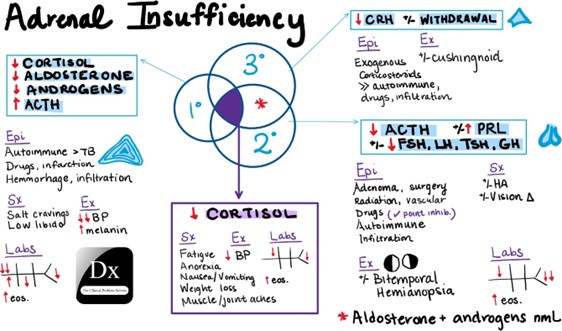 Adrenal Insufficiency
↓ CORTISOL
↓ ALDOSTERONE
↓ ANDROGENS
↑ ACTH
Epi
Autoimmune > TB
Drugs, infarction
Hemorrhage, infiltration
Sx
Salt cravings
Low libido
Ex
↓↓ BP
↑ melanin
Labs
↑ eos.
Dx
The Clinical Problem Solvers
1°
3°
2°
*
↓ CORTISOL
Sx
Fatigue
Anorexia
Nausea/Vomiting
Weight loss
Muscle/joint aches
Ex
↓ BP
Labs
↑ eos.
↓ CRH +/- WITHDRAWAL
Epi
Exogenous
Corticosteroids
>> autoimmune,
drugs, infiltration
Ex
+/- cushingnoid
↓ ACTH +/- ↑ PRL
+/- ↓ FSH, LH, TSH, GH
Epi
Adenoma, surgery
Radiation, vascular
Drugs (✓ point inhib.)
Autoimmune
Infiltration
Sx
+/- HA
+/- Vision Δ
Ex
+/- Bitemporal
Hemianopsia
Labs
↑ eos.
* Aldosterone + androgens nml